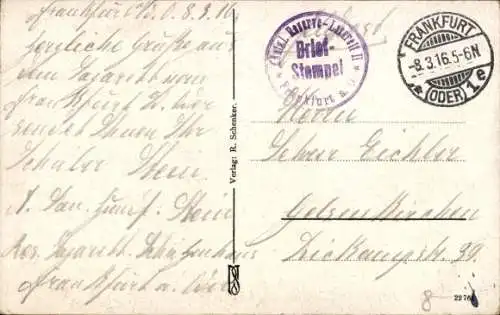 Frankfurt a/O. 8.3.16
Herzliche Grüße aus
dem Lazarett von
Frankfurt a. Oder
sendet Ihnen Ihr
Schüler Stein.
Stein
Res. Lazarett Schützenhaus
Frankfurt a. Oder
Verlag: R. Schenker.
Reserve-Lazarett II
Brief-
Stempel
Frankfurt a. O.
FRANKFURT
-8.3.16.5-6N
* (ODER) 1e
Herrn
Lehrer Eichler
Gelsenkirchen
39.
8